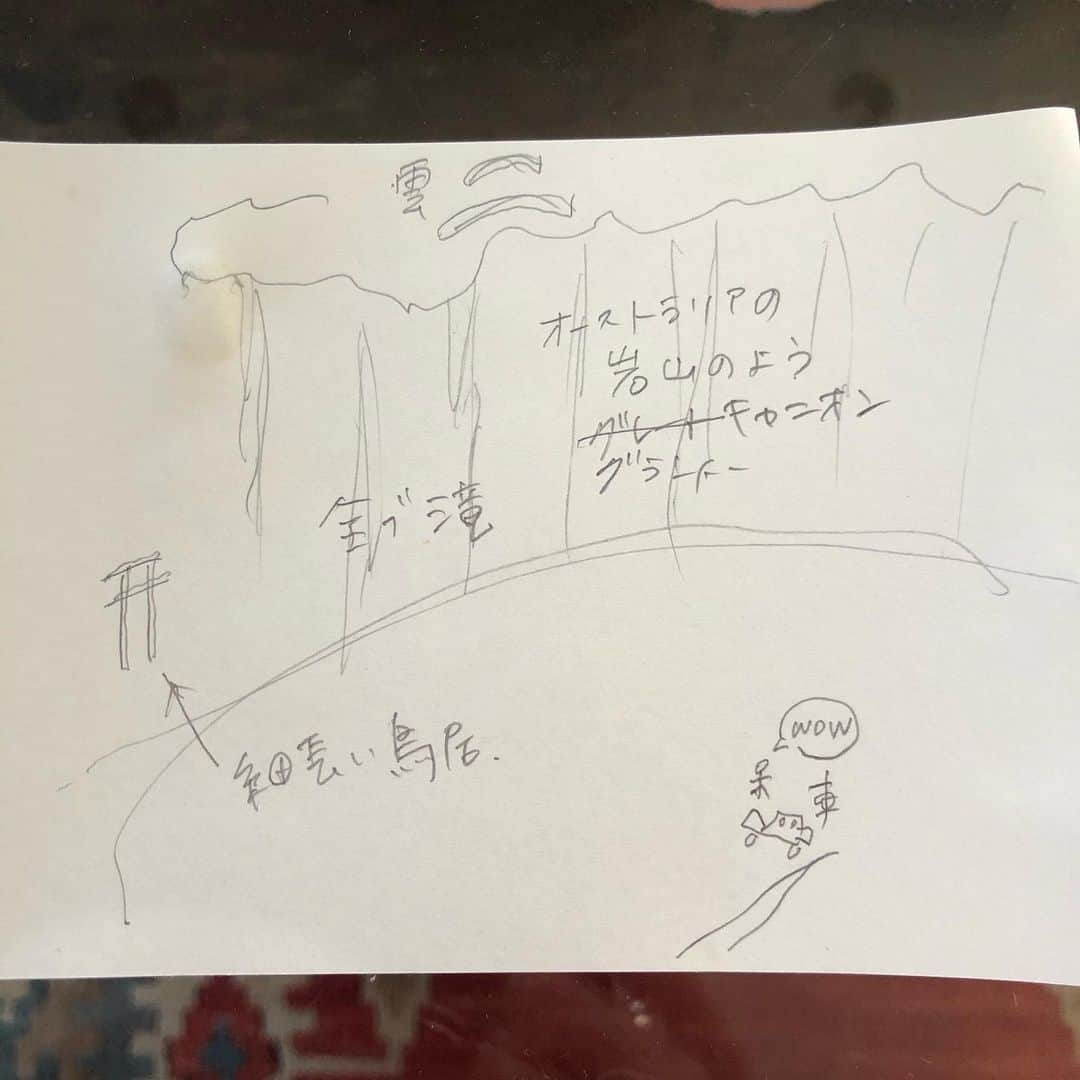 雲
オーストラリアの
岩山のよう
グレートキャニオン
グランドー
全ブ滝
細長い鳥居.
WOW
呆
車